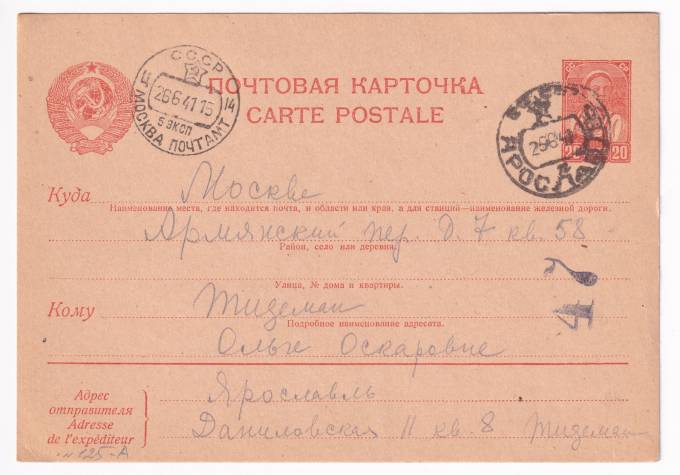 СССР
26641 15
Ц 14
5 эксп
МОСКВА ПОЧТАМТ
ПОЧТОВАЯ КАРТОЧКА
CARTE POSTALE
20 20
ЯРОС
Куда Москве
Наименование места, где находится почта, и области или края, а для станций—наименование железной дороги.
Армянский пер. д. 7 кв. 58
Район, село или деревня.
Улица, № дома и квартиры.
Кому Тидеман
Подробное наименование адресата.
Ольге Оскаровне
Адрес
отправителя
Adresse
de l'expéditeur
Ярославль
Даниловская 11 кв. 8 Тидеман
№125-А